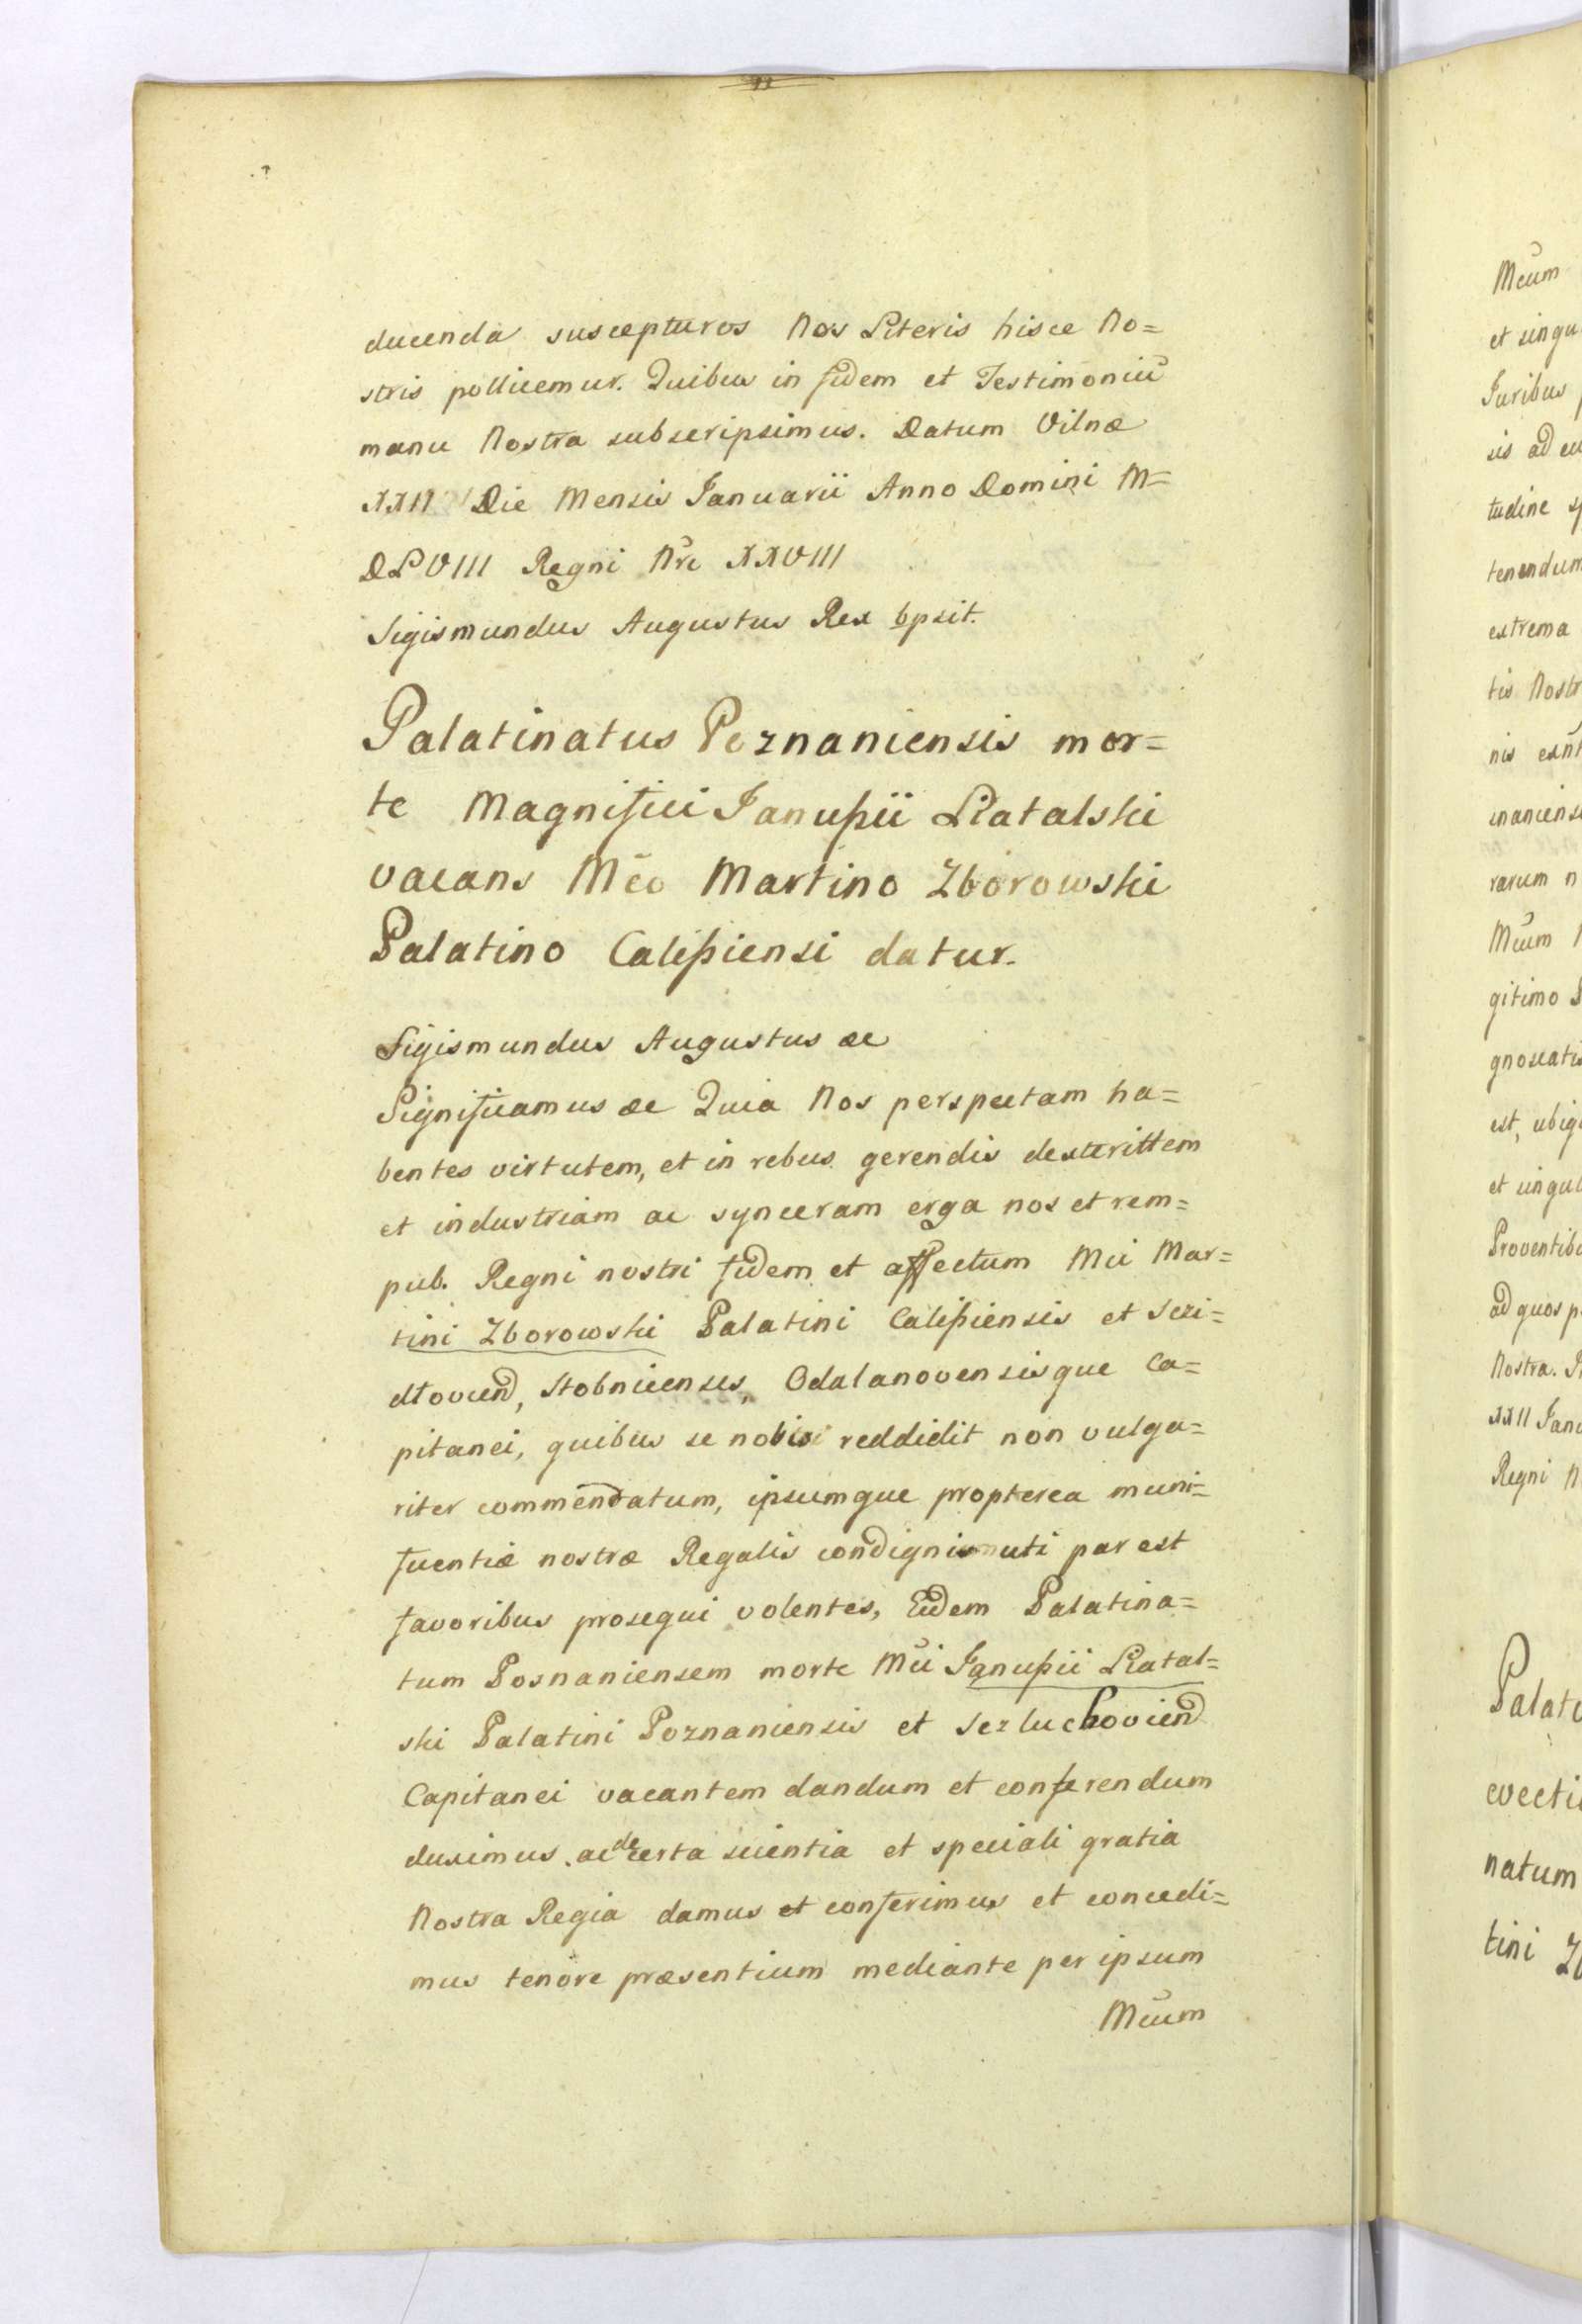 ducenda suscepturos Nos Literis hisce No=
stris pollicemur. Quibus in fidem et Testimoniū
manu Nostra subscripsimus. Datum Vilnæ
XXII Die Mensis Januarii Anno Domini M=
DLVIII Regni Nri XXVIII
Sigismundus Augustus Rex sbpsit.
Palatinatus Poznaniensis mor=
te Magnifici Janussii Liatalski
vacans Mco Martino Zborowski
Palatino Calissiensi datur.
Sigismundus Augustus &c
Significamus &c Quia Nos perspectam ha=
bentes virtutem, et in rebus gerendis dexterittem
et industriam ac synceram erga nos et rem=
pub. Regni nostri fidem et affectum Mci Mar=
tini Zborowski Palatini Calissiensis et Szi=
dłoviend, Stobnicenses, Odalanovensisque Ca=
pitanei, quibus se nobis reddidit non vulga=
riter commendatum, ipsumque propterea muni=
ficentiæ nostræ Regalis condignis uti par est
favoribus prosequi volentes, Eidem Palatina=
tum Posnaniensem morte Mci Janussii Liatal=
ski Palatini Poznaniensis et Sezluchoviend
Capitanei vacantem dandum et conferendum
duximus, ac de certa scientia et speciali gratia
Nostra Regia damus et conferimus et concedi=
mus tenore præsentium mediante per ipsum
Mcum
Mcum
et singu
Juribus
sis ad eu
tudine sp
tenendum
extrema
tis Nostr
nis exnt
inanciensi
rarum n
Mcum
gitimo
gnoscatis
est, ubiq
et singul
Proventib
ad quos p
Nostra.
XXII Janu
Regni N
Palati
evecti
natum
tini Z